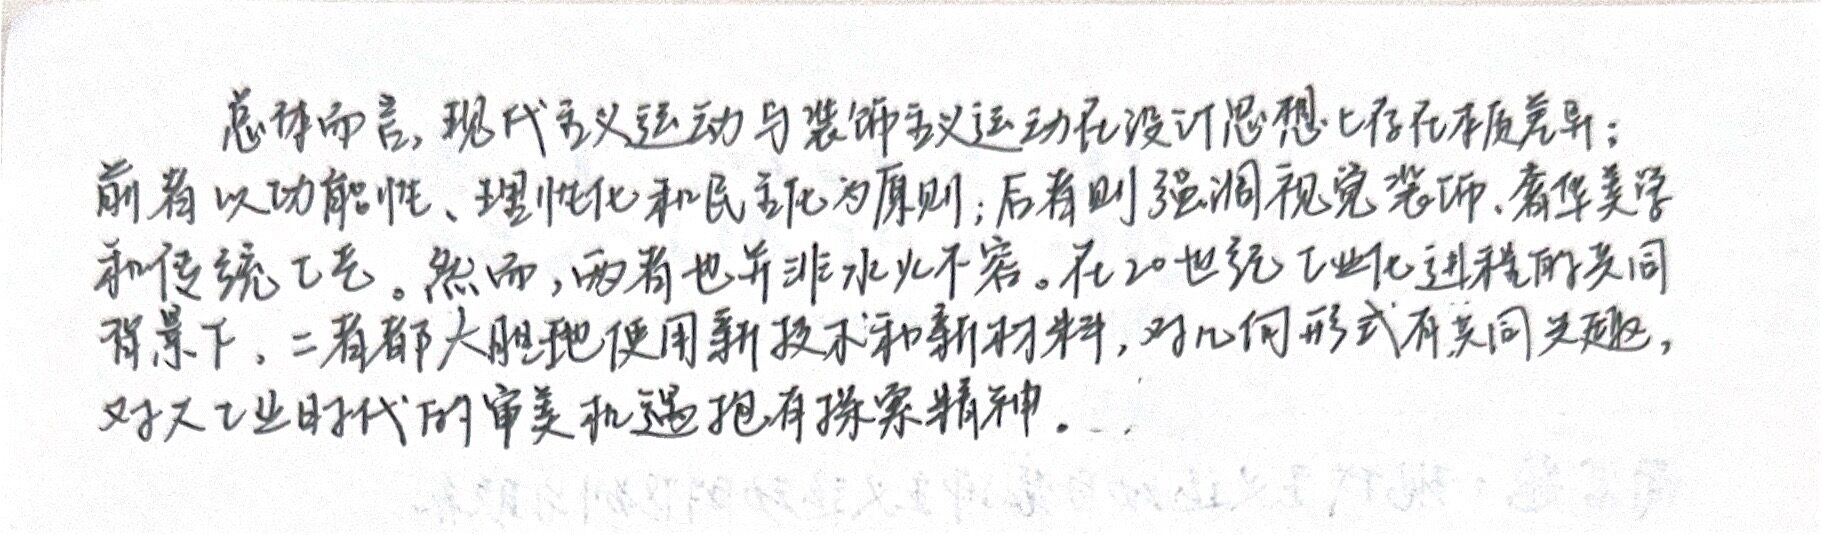 总体而言，现代主义运动与装饰主义运动在设计思想上存在本质差异：
前者以功能性、理性化和民主化为原则；后者则强调视觉装饰、奢华美学
和传统工艺。然而，两者也并非水火不容。在20世纪工业化进程的共同
背景下，二者都大胆地使用新技术和新材料，对几何形式有共同兴趣，
对大工业时代的审美机遇抱有探索精神。